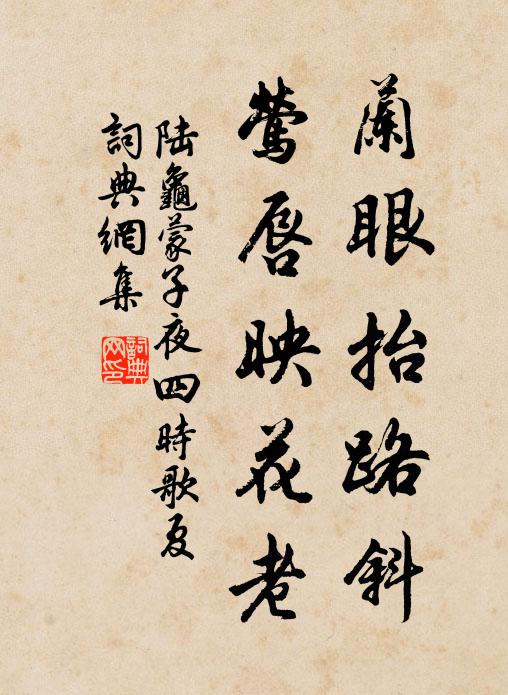 蘭眼抬路斜
鶯唇映花老
陸龜蒙子夜四時歌夏
詞典網集
詞典
网印